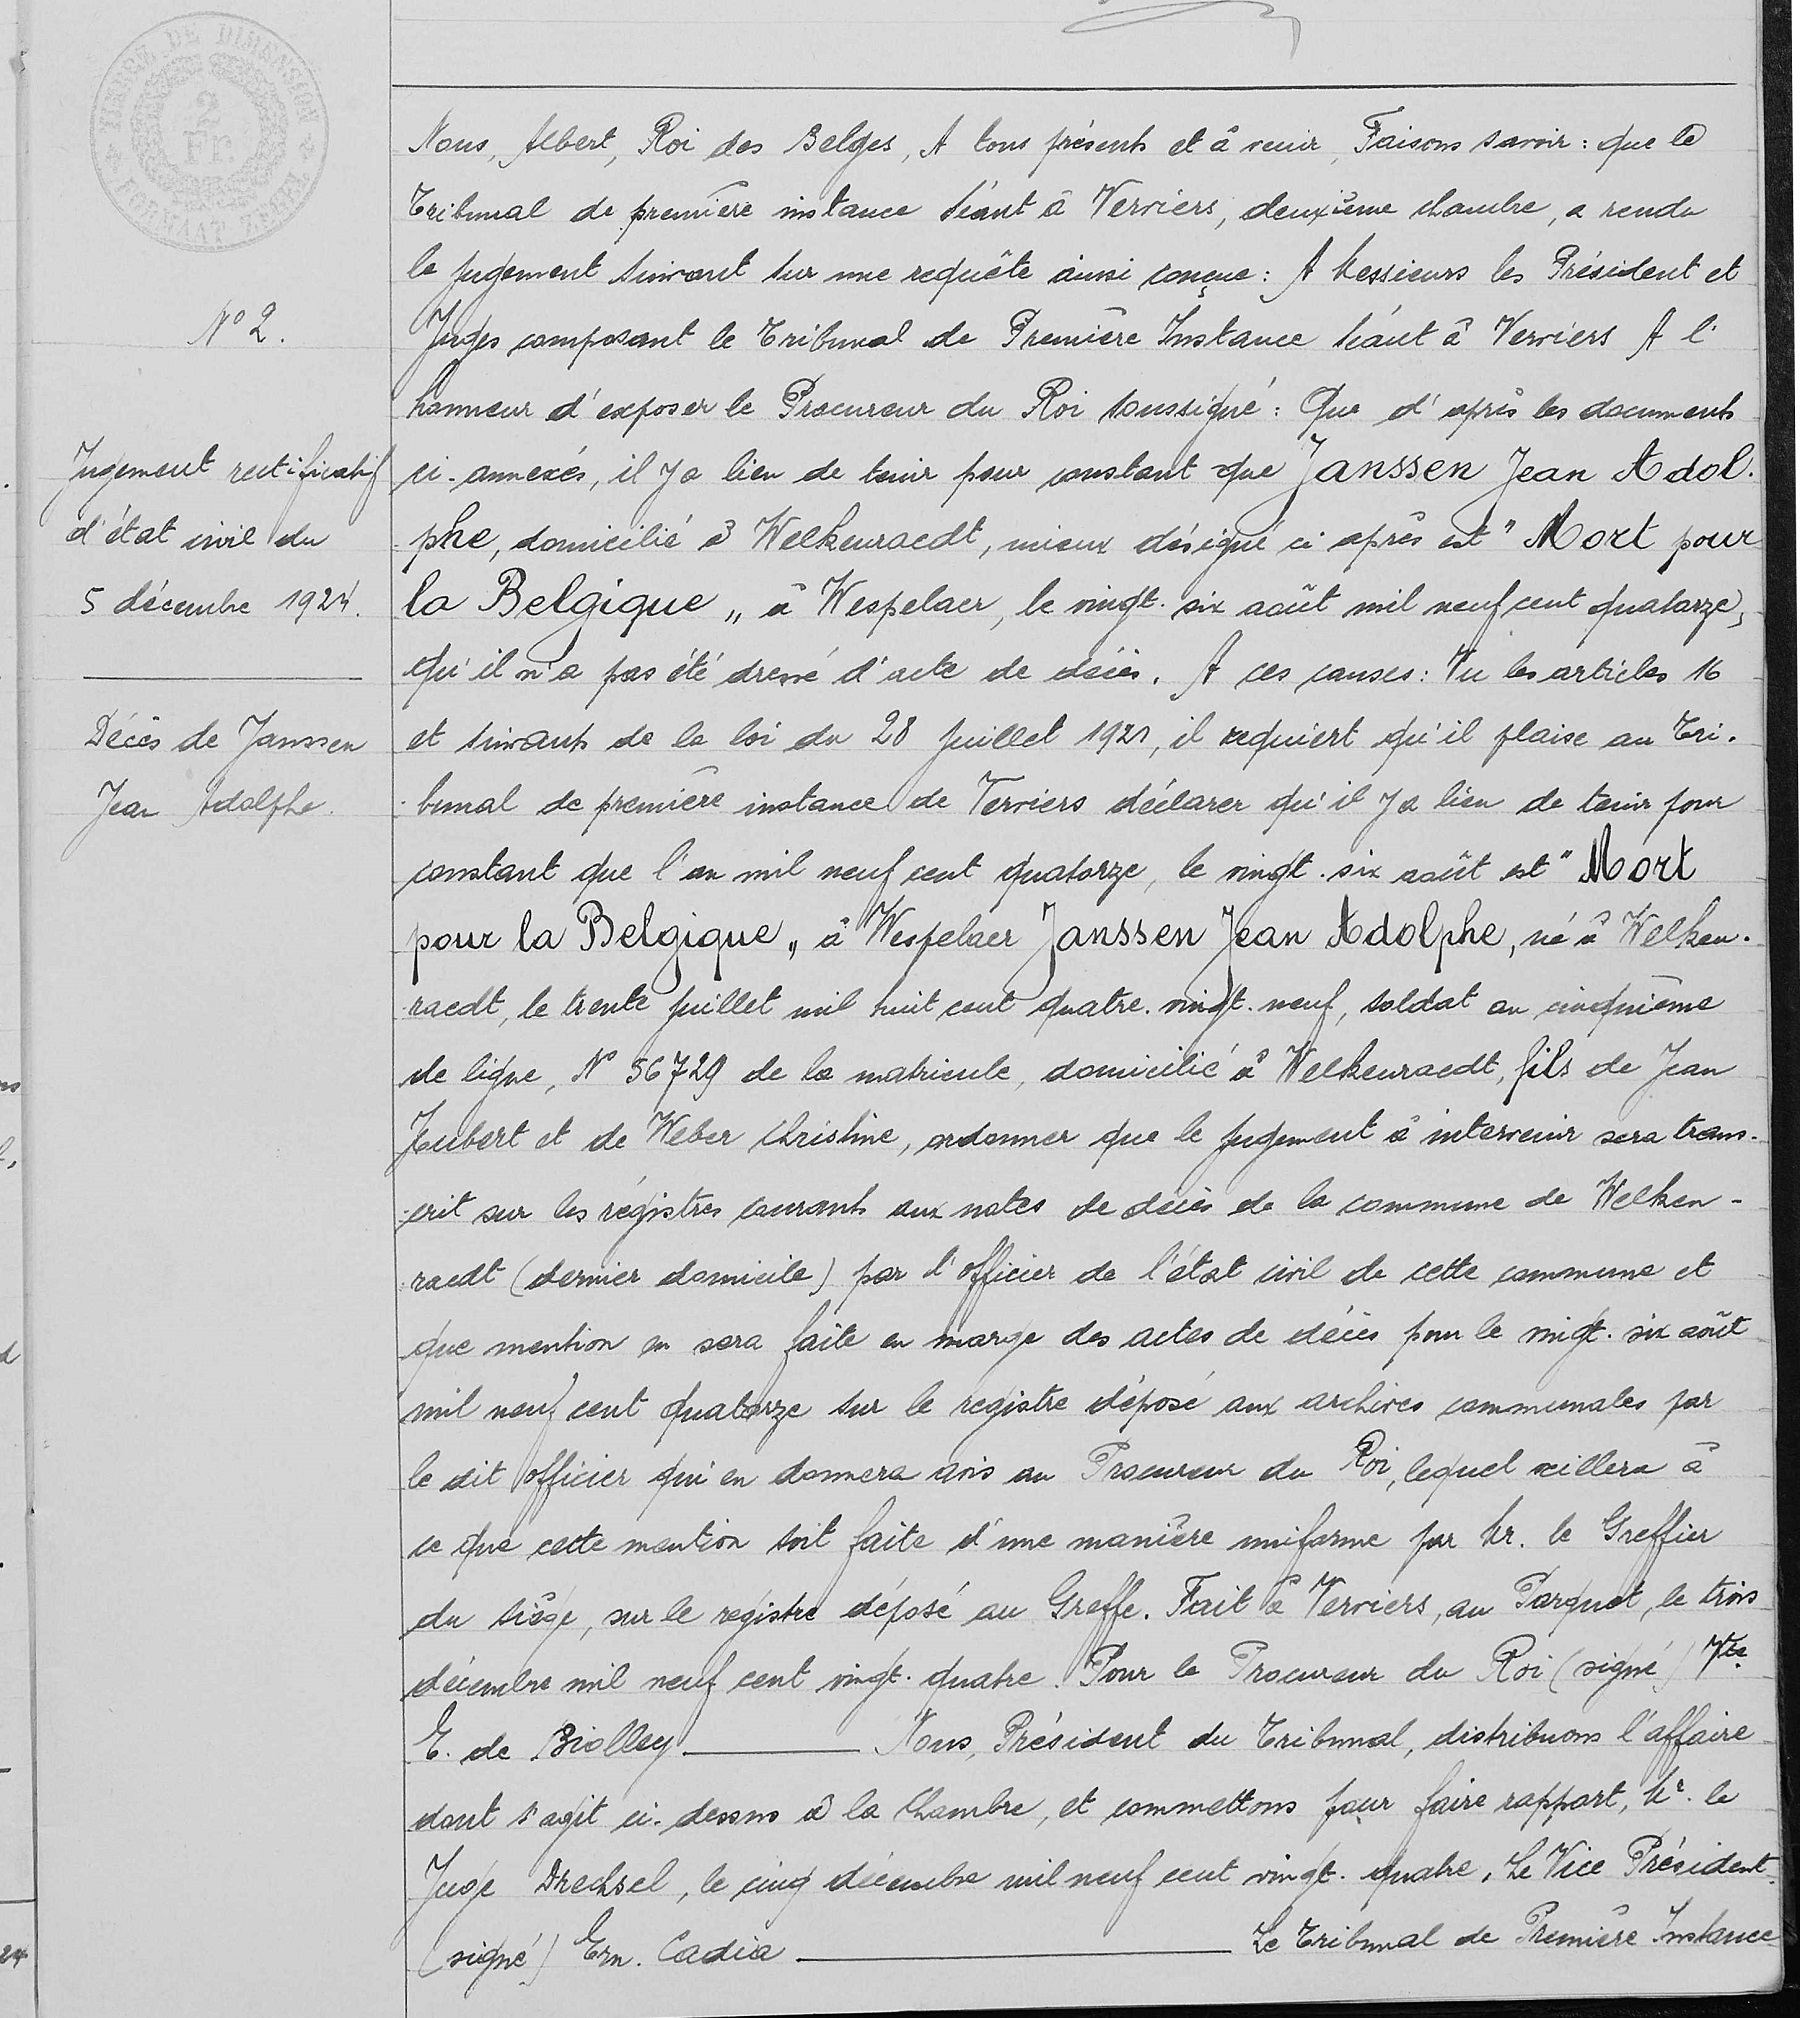 TIMBRE DE DIMENSION
2
Fr.
N° 2.
Jugement rectificatif
d'état civil du
5 décembre 1924.
Décès de Janssen
Jean Adolphe.
Nous, Albert, Roi des Belges, A tous présents et à venir, Faisons savoir : que le
Tribunal de première instance séant à Verviers, deuxième chambre, a rendu
le jugement suivant sur une requête ainsi conçue : A Messieurs les Président et
Juges composant le Tribunal de Première Instance séant à Verviers A l'
honneur d'exposer le Procureur du Roi soussigné : Que d'après les documents
ci-annexés, il y a lieu de tenir pour constant que Janssen Jean Adol-
phe, domicilié à Welkenraedt, mieux désigné ci après est " Mort pour
la Belgique „ à Wespelaer, le vingt-six août mil neuf cent quatorze,
qu'il n'a pas été dressé d'acte de décès. A ces causes : Vu les articles 16
et suivants de la loi du 28 juillet 1921, il requiert qu'il plaise au Tri-
bunal de première instance de Verviers déclarer qu'il y a lieu de tenir pour
constant que l'an mil neuf cent quatorze, le vingt-six août est " Mort
pour la Belgique „ à Wespelaer Janssen Jean Adolphe, né à Welken-
raedt, le trente juillet mil huit cent quatre-vingt-neuf, soldat au cinquième
de ligne, N° 56729 de la matricule, domicilié à Welkenraedt, fils de Jean
Hubert et de Weber Christine, ordonner que le jugement à intervenir sera trans-
crit sur les régistres courants aux notes de décès de la commune de Welken-
raedt (dernier domicile) par l'officier de l'état civil de cette commune et
que mention en sera faite en marge des actes de décès pour le vingt-six août
mil neuf cent quatorze sur le registre déposé aux archives communales par
le dit officier qui en donnera avis au Procureur du Roi, lequel veillera à
ce que cette mention soit faite d'une manière uniforme par Mr. le Greffier
du siège, sur le régistre déposé au Greffe. Fait à Verviers, au Parquet, le trois
décembre mil neuf cent vingt-quatre. Pour le Procureur du Roi (signé) Vte
E. de Biolley Nous, Président du Tribunal, distribuons l'affaire
dont s'agit ci-dessus à la Chambre, et commettons pour faire rapport, Mr. le
Juge Drechsel, le cinq décembre mil neuf cent vingt-quatre. Le Vice Président
(signé) Ern. Cadia Le Tribunal de Première Instance